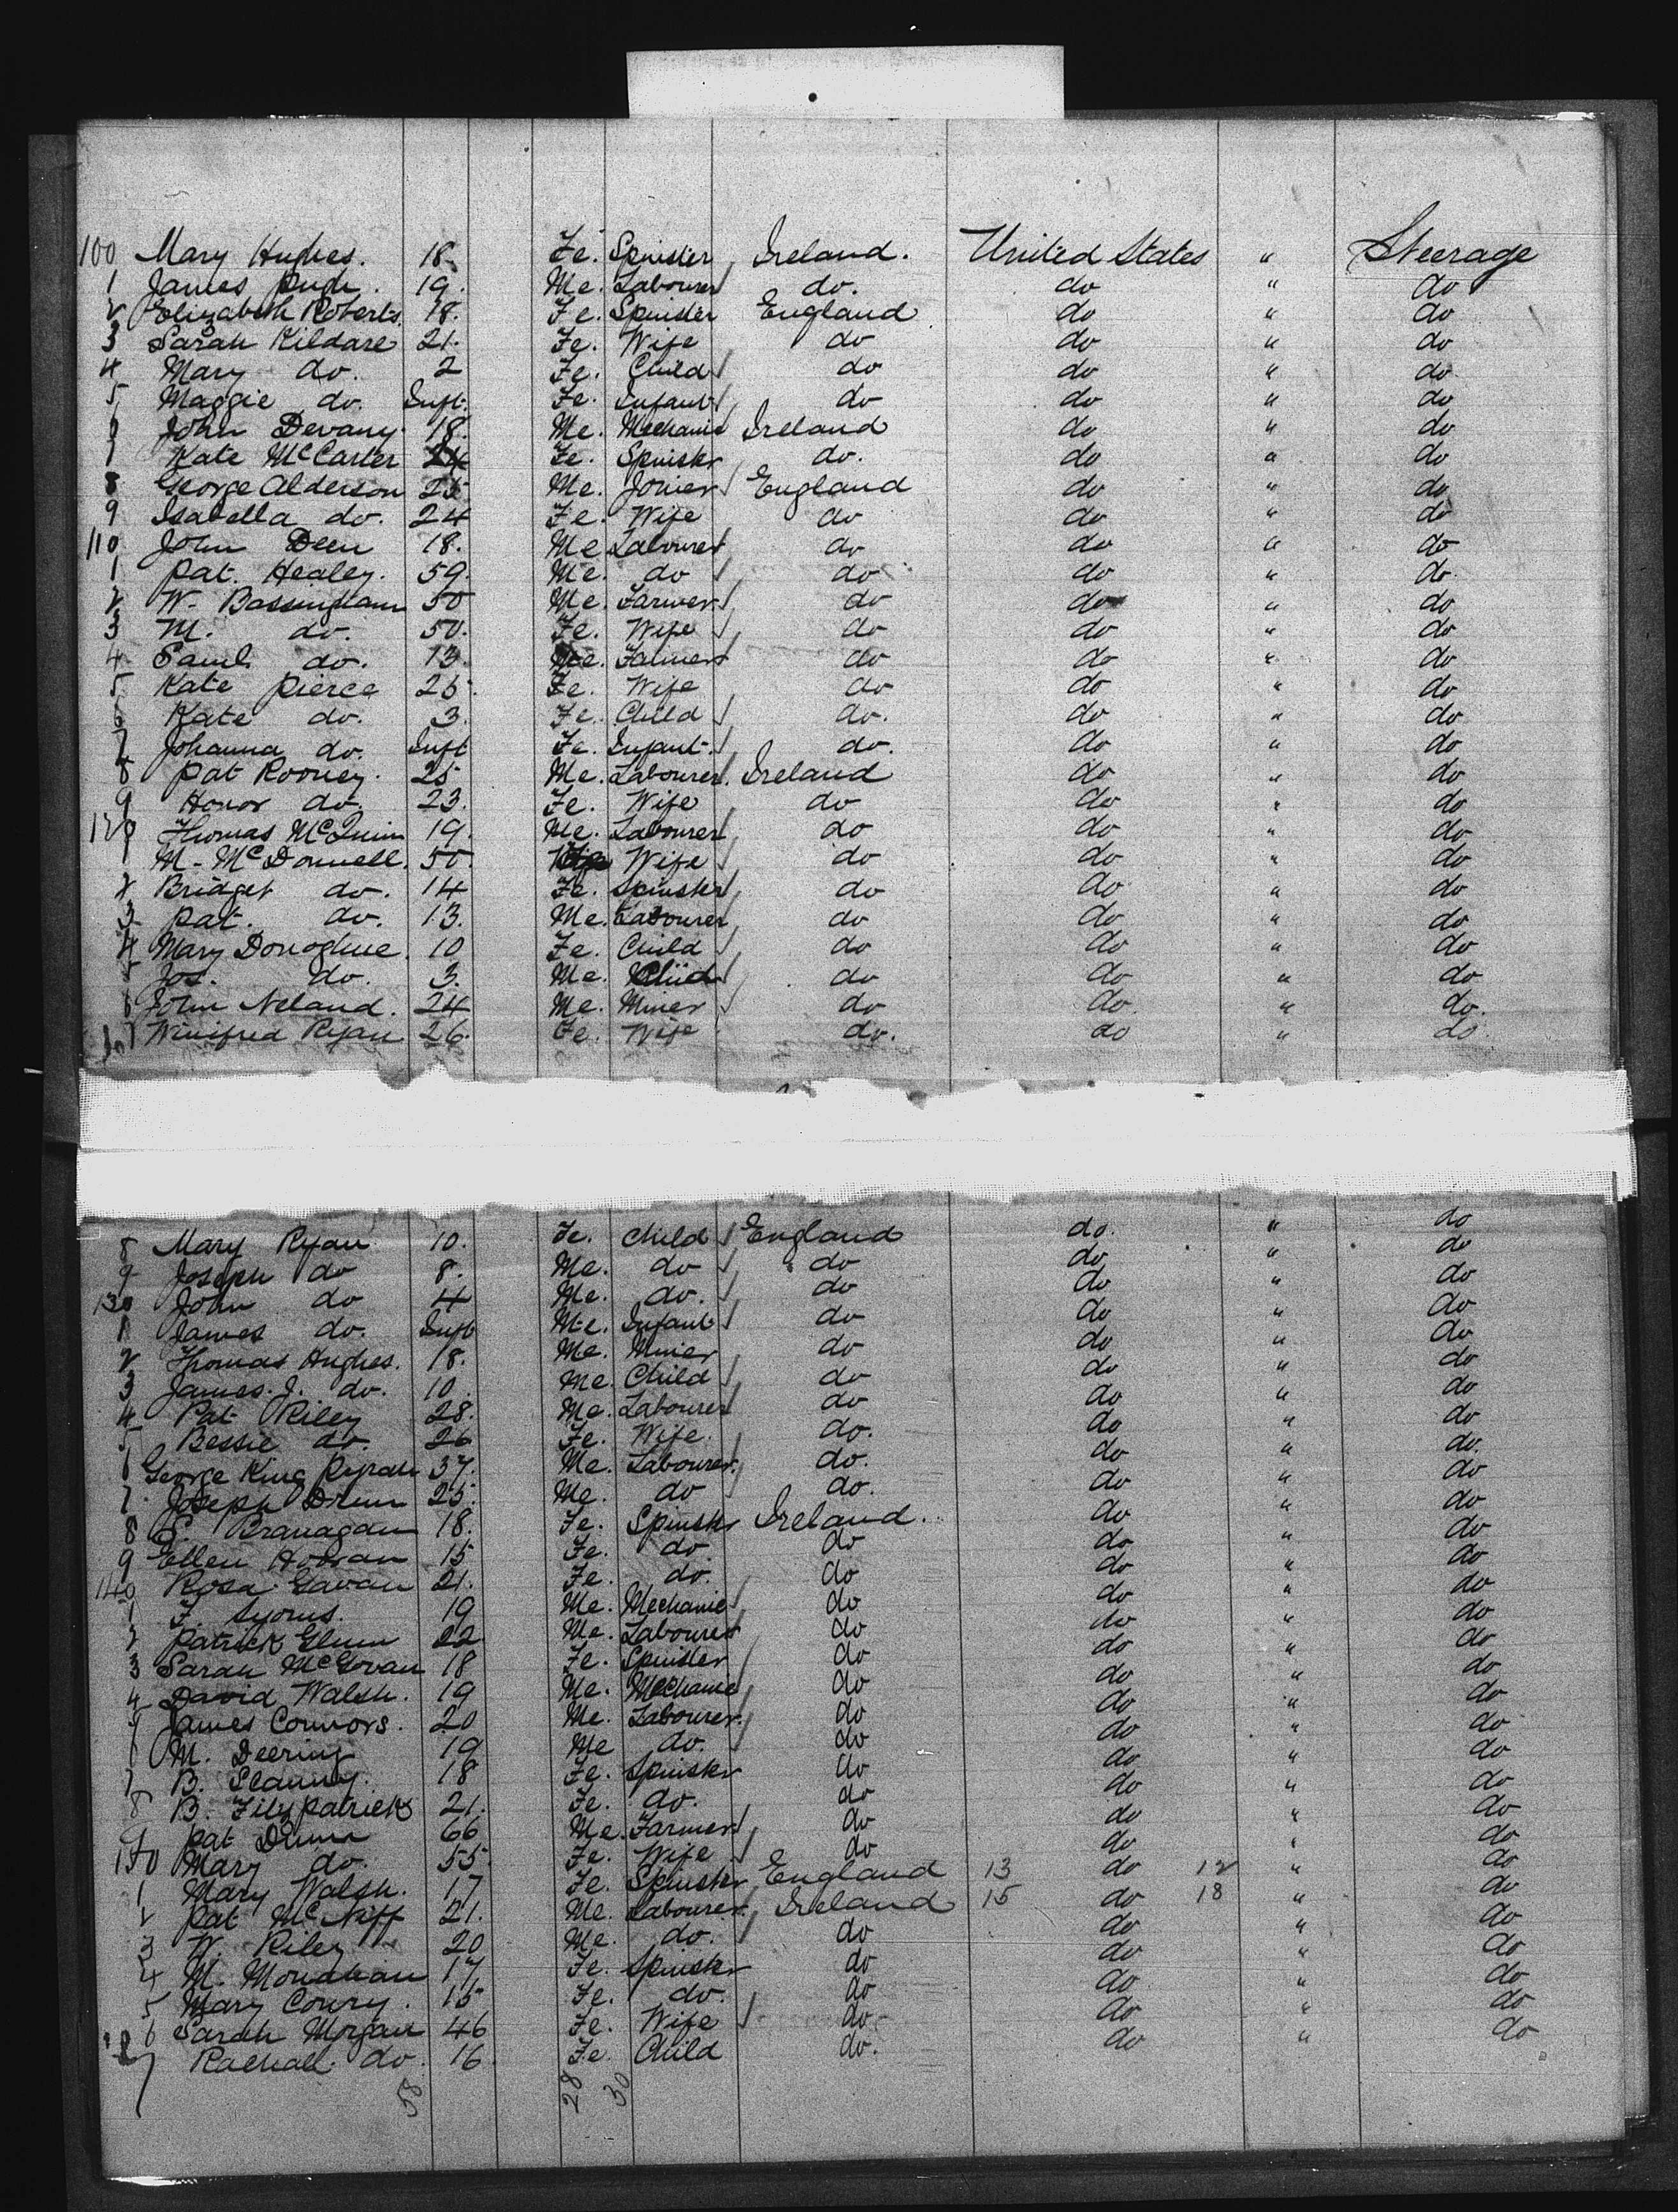 100 Mary Hughes. 18. Fe. Spinster Ireland. United States " Steerage
1 James Pugh. 19. Me. Labourer do. do " do
2 Elizabeth Roberts. 18. Fe. Spinster England do " do
3 Sarah Kildare 21. Fe. Wife do do " do
4 Mary do. 2 Fe. Child do do " do
5 Maggie do. Inft. Fe. Infant do do " do
6 John Devany 18. Me. Mechanic Ireland do " do
7 Kate McCarter 24 Fe. Spinster do. do " do
8 George Alderson 25 Me. Joiner England do " do
9 Isabella do. 24 Fe. Wife do do " do
110 John Deen 18. Me Labourer do do " do
1 Pat. Healey. 59. Me. do do do " do
2 W. Bassingham 50 Me. Farmer do do " do
3 M. do. 50. Fe. Wife do do " do
4 Saml. do. 13. Me. Farmer do do " do
5 Kate Pierce 25. Fe. Wife do do " do
6 Kate do. 3. Fe. Child do. do " do
7 Johanna do. Inft Fe. Infant. do. do " do
8 Pat Rooney. 25 Me. Labourer. Ireland do " do
9 Honor do. 23. Fe. Wife do do " do
120 Thomas McQuinn 19. Me. Labourer do do " do
1 M. McDonnell. 50. Wife do do " do
2 Bridget do. 14 Fe. Spinster do do " do
3 Pat. do. 13. Me. Labourer do do " do
4 Mary Donoghue. 10 Fe. Child do do " do
5 Jos. do. 3. Me. Child do do " do
6 John Neland. 24 Me. Miner do do " do.
7 Winifred Ryan 26. Fe. Wife do. do " do.
8 Mary Ryan 10. Fe. Child England do. " do
9 Joseph do 8. Me. do do do " do
130 John do 4 Me. do. do do " do
1 James do. Inft Me. Infant do do " do
2 Thomas Hughes. 18. Me. Miner do do " do
3 James. J. do. 10. Me. Child do do " do
4 Pat Riley 28. Me. Labourer do do " do
5 Bessie do. 26 Fe. Wife. do. do " do
6 George King 37. Me. Labourer. do. do " do.
7. Joseph 25. Me. do do. do " do
8 S. Branagan 18. Fe. Spinster Ireland. do " do
9 Ellen 15 Fe. do do do " do
140 Rosa Gavan 21. Fe. do. do do " do
1 F. Lyons. 19 Me. Mechanic do do " do
2 Patrick Glynn 22 Me. Labourer do do " do
3 Sarah McGovan 18 Fe. Spinster do do " do
4 David Walsh. 19 Me. Mechanic do do " do
5 James Connors. 20 Me. Labourer. do do " do
6 M. Deering 19 Me do. do do " do
7 B. 18 Fe. Spinster do do " do
8 B. Fitzpatrick 21. Fe. do. do do " do
9 Pat Dunn 66 Me. Farmer do do " do
150 Mary do. 55. Fe. Wife do do " do
1 Mary Walsh. 17 Fe. Spinster England 13 do 12 " do
2 Pat McNiff 21. Me. Labourer. Ireland 15 do 18 " do
3 W. Riley 20 Me. do. do do " do
4 M. Monahan 17 Fe. Spinster do do " do
5 Mary Coury. 15 Fe. do. do do " do
6 Sarah Morgan 46 Fe. Wife do do " do
7 Rachael do. 16 Fe. Child do. do " do
58 28 30